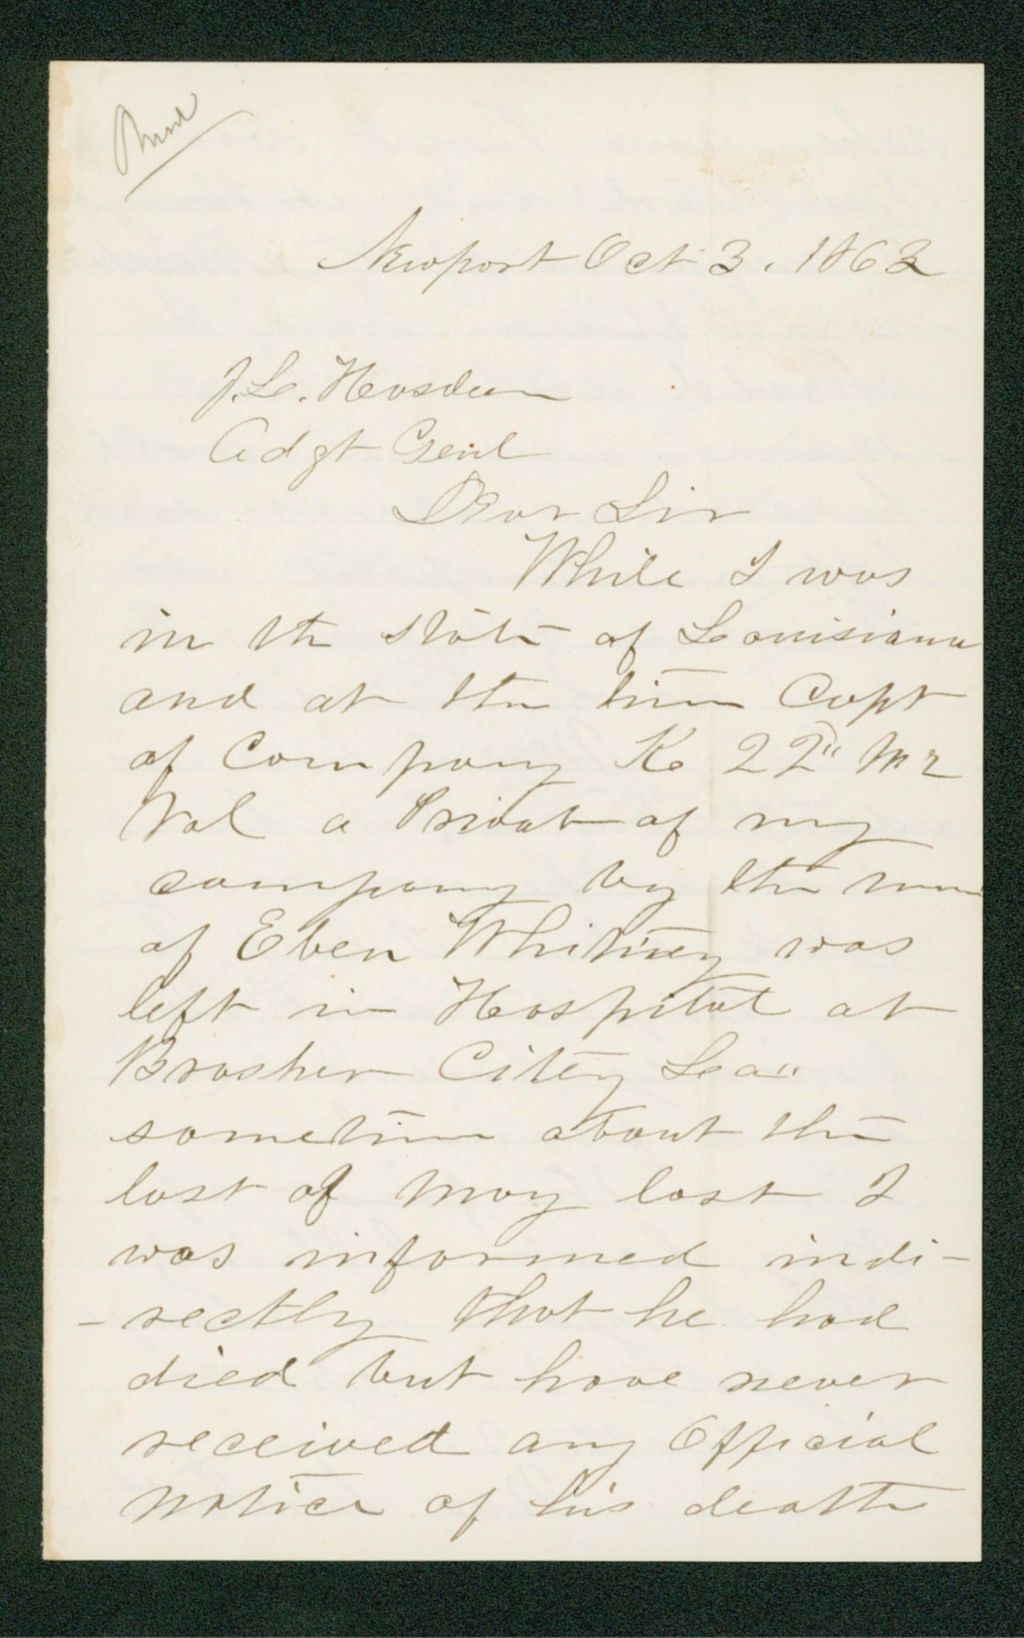 Newport Oct 3. 1863
J.L. Hosdun
Adgt Genl
Dear Sir
While I was
in the state of Louisiana
and at the time Capt
of Company K 22" Me
Vol a Privat of my
company by the name
of Eben Whitney was
left in Hospital at
Brasher City Lea"
sometime about the
last of May last I
was informed indi-
-rectly that he had
died but have never
received any Official
notice of his death